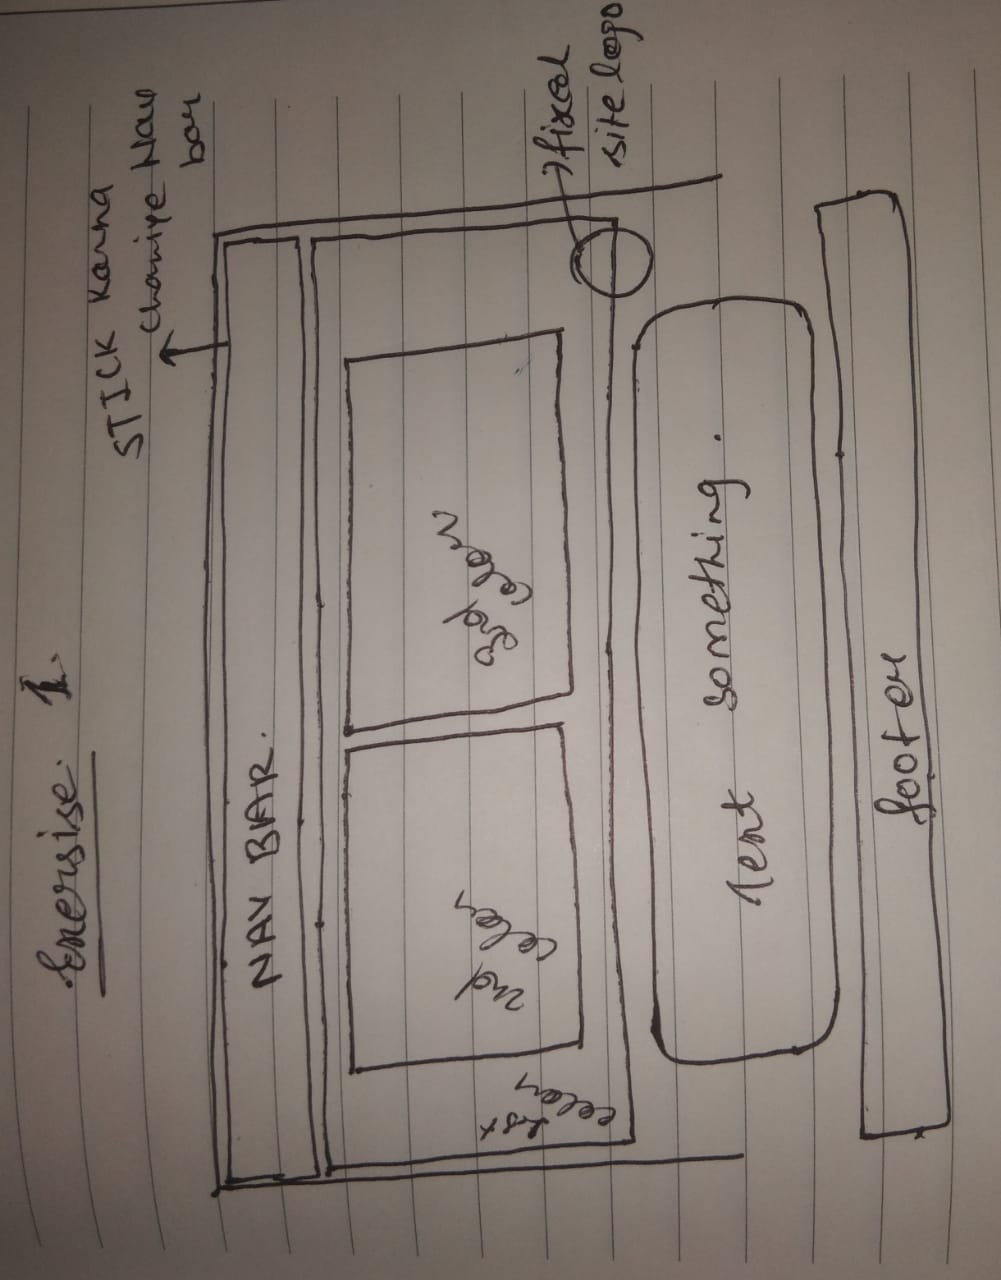 Exersise. 1.
STICK Karna
Chahiye Nav
bar
NAV BAR.
1st
color
2nd
color
3rd
color
fixed
site logo
Text something.
footer